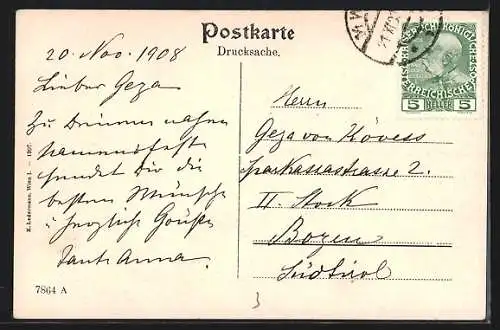 Postkarte
Drucksache.
20. Nov. 1908
Lieber Geza
Zu Deinem nahen
Namensfeste
sendet Dir die
besten Wünsche
u. herzliche Grüsse
Tante Anna.
Herrn
Geza von Hövess
Sparkassastrasse 2.
II. Stock
Bozen
Südtirol
KAISERLICHE KÖNIGLICHE
ÖSTERREICHISCHE POST
5 HELLER 5
E. Ledermann, Wien I. — 1907.
7864 A
3